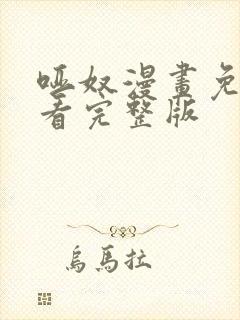 哑奴漫畫免
看完整版
烏馬拉